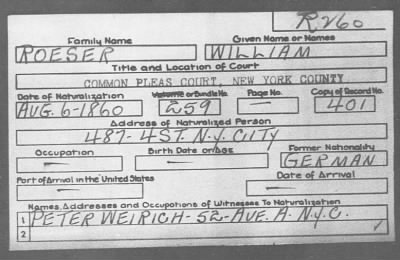 R260
Family Name Given Name or Names
ROESER WILLIAM
Title and Location of Court
COMMON PLEAS COURT, NEW YORK COUNTY
Date of Naturalization Volume or Bundle No. Page No. Copy of Record No.
AUG. 6-1860 259 — 401
Address of Naturalized Person
487-4 ST. N.Y. CITY
Occupation Birth Date or Age Former Nationality
— — GERMAN
Port of Arrival in the United States Date of Arrival
— —
Names, Addresses and Occupations of Witnesses To Naturalization
1 PETER WEIRICH-52-AVE. A. N.Y.C.
2